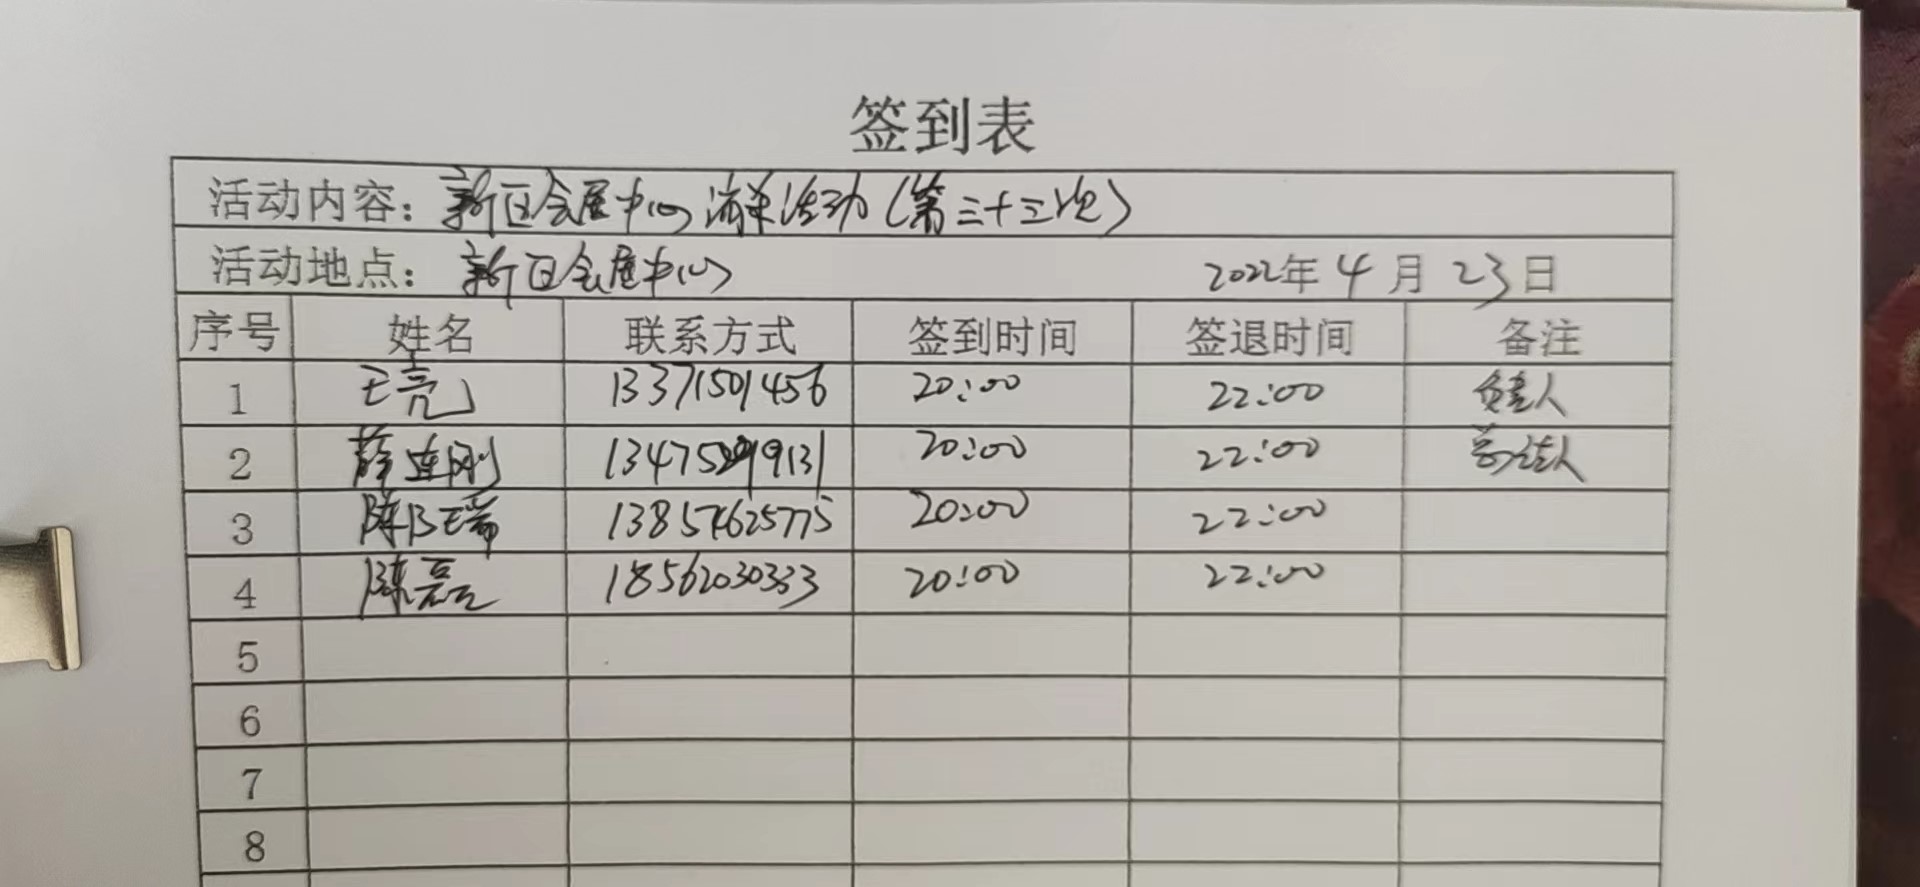 签到表
活动内容：新区会展中心消杀活动（第三十三次）
活动地点：新区会展中心 2022年4月23日
序号 姓名 联系方式 签到时间 签退时间 备注
1 王亮 13371501456 20:00 22:00 负责人
2 薛连刚 20:00 22:00
3 陈玉瑞 13857625775 20:00 22:00
4 陈磊 18562030333 20:00 22:00
5
6
7
8